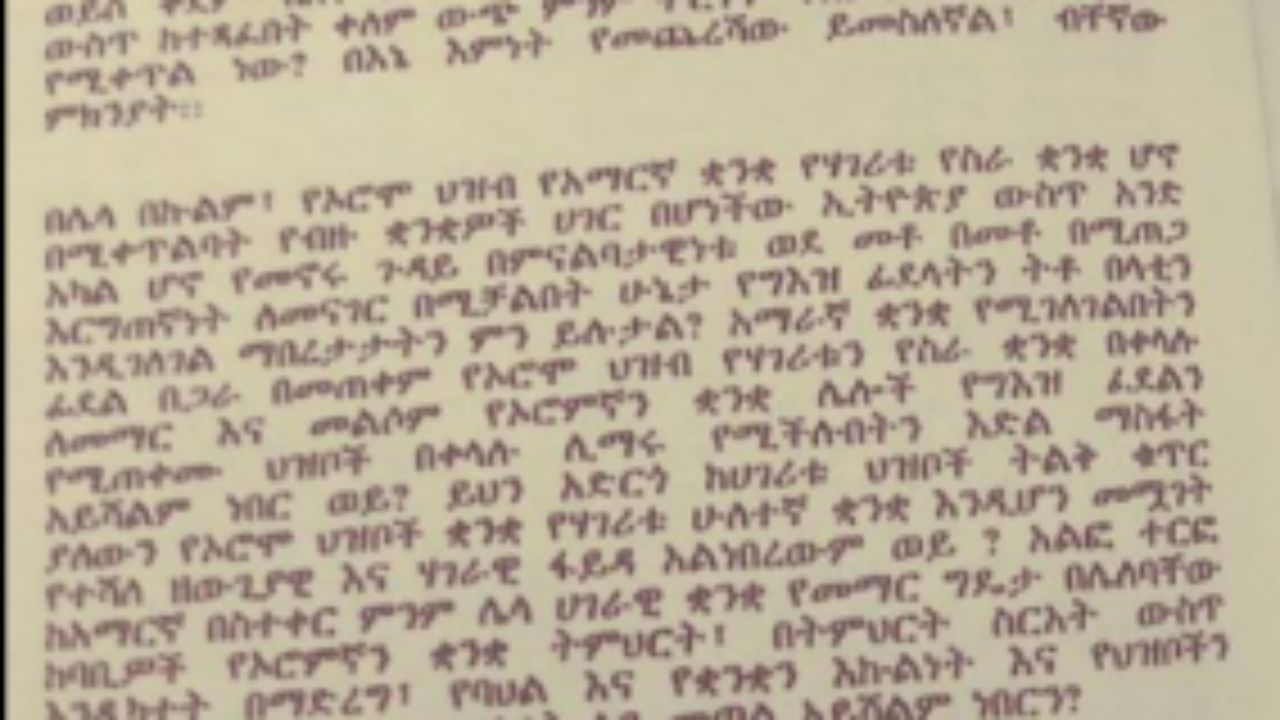 ውስጥ ከተዳፈበት ቀለም ውጭ ምንም
የሚቀጥል ነው? በእኔ እምነት የመጨረሻው ይመስለኛል፣ ብቸኛው
ምክንያት።
በሌላ በኩልም፣ የኦሮሞ ህዝብ የአማርኛ ቋንቋ የሃገሪቱ የስራ ቋንቋ ሆኖ
በሚቀጥልባት የብዙ ቋንቋዎች ሀገር በሆነችው ኢትዮጵያ ውስጥ አንድ
አካል ሆኖ የመኖሩ ጉዳይ በምናልባታዊነቱ ወደ መቶ በመቶ በሚጠጋ
እርግጠኛነት ለመናገር በሚቻልበት ሁኔታ የግእዝ ፊደላትን ትቶ በላቲን
እንዲገለገል ማበረታታትን ምን ይሉታል? አማራኛ ቋንቋ የሚገለገልበትን
ፊደል ቢጋራ በመጠቀም የኦሮሞ ህዝብ የሃገሪቱን የስራ ቋንቋ በቀላሉ
ለመማር እና መልሶም የኦሮምኛን ቋንቋ ሌሎች የግእዝ ፊደልን
የሚጠቀሙ ህዝቦች በቀላሉ ሊማሩ የሚችሉበትን እድል ማስፋት
አይሻልም ነበር ወይ? ይህን አድርጎ ከሀገሪቱ ህዝቦች ትልቅ ቁጥር
ያለውን የኦሮሞ ህዝቦች ቋንቋ የሃገሪቱ ሁለተኛ ቋንቋ እንዲሆን መሟገት
የተሻለ ዘውጊያዊ እና ሃገራዊ ፋይዳ አልነበረውም ወይ ? አልፎ ተርፎ
ከአማርኛ በስተቀር ምንም ሌላ ሀገራዊ ቋንቋ የመማር ግዴታ በሌለባቸው
ከባቢዎች የኦሮምኛን ቋንቋ ትምህርት፣ በትምህርት ስርአት ውስጥ
እንዲካተት በማድረግ፣ የባህል እና የቋንቋን እኩልነት እና የህዝቦችን
አይሻልም ነበርን?